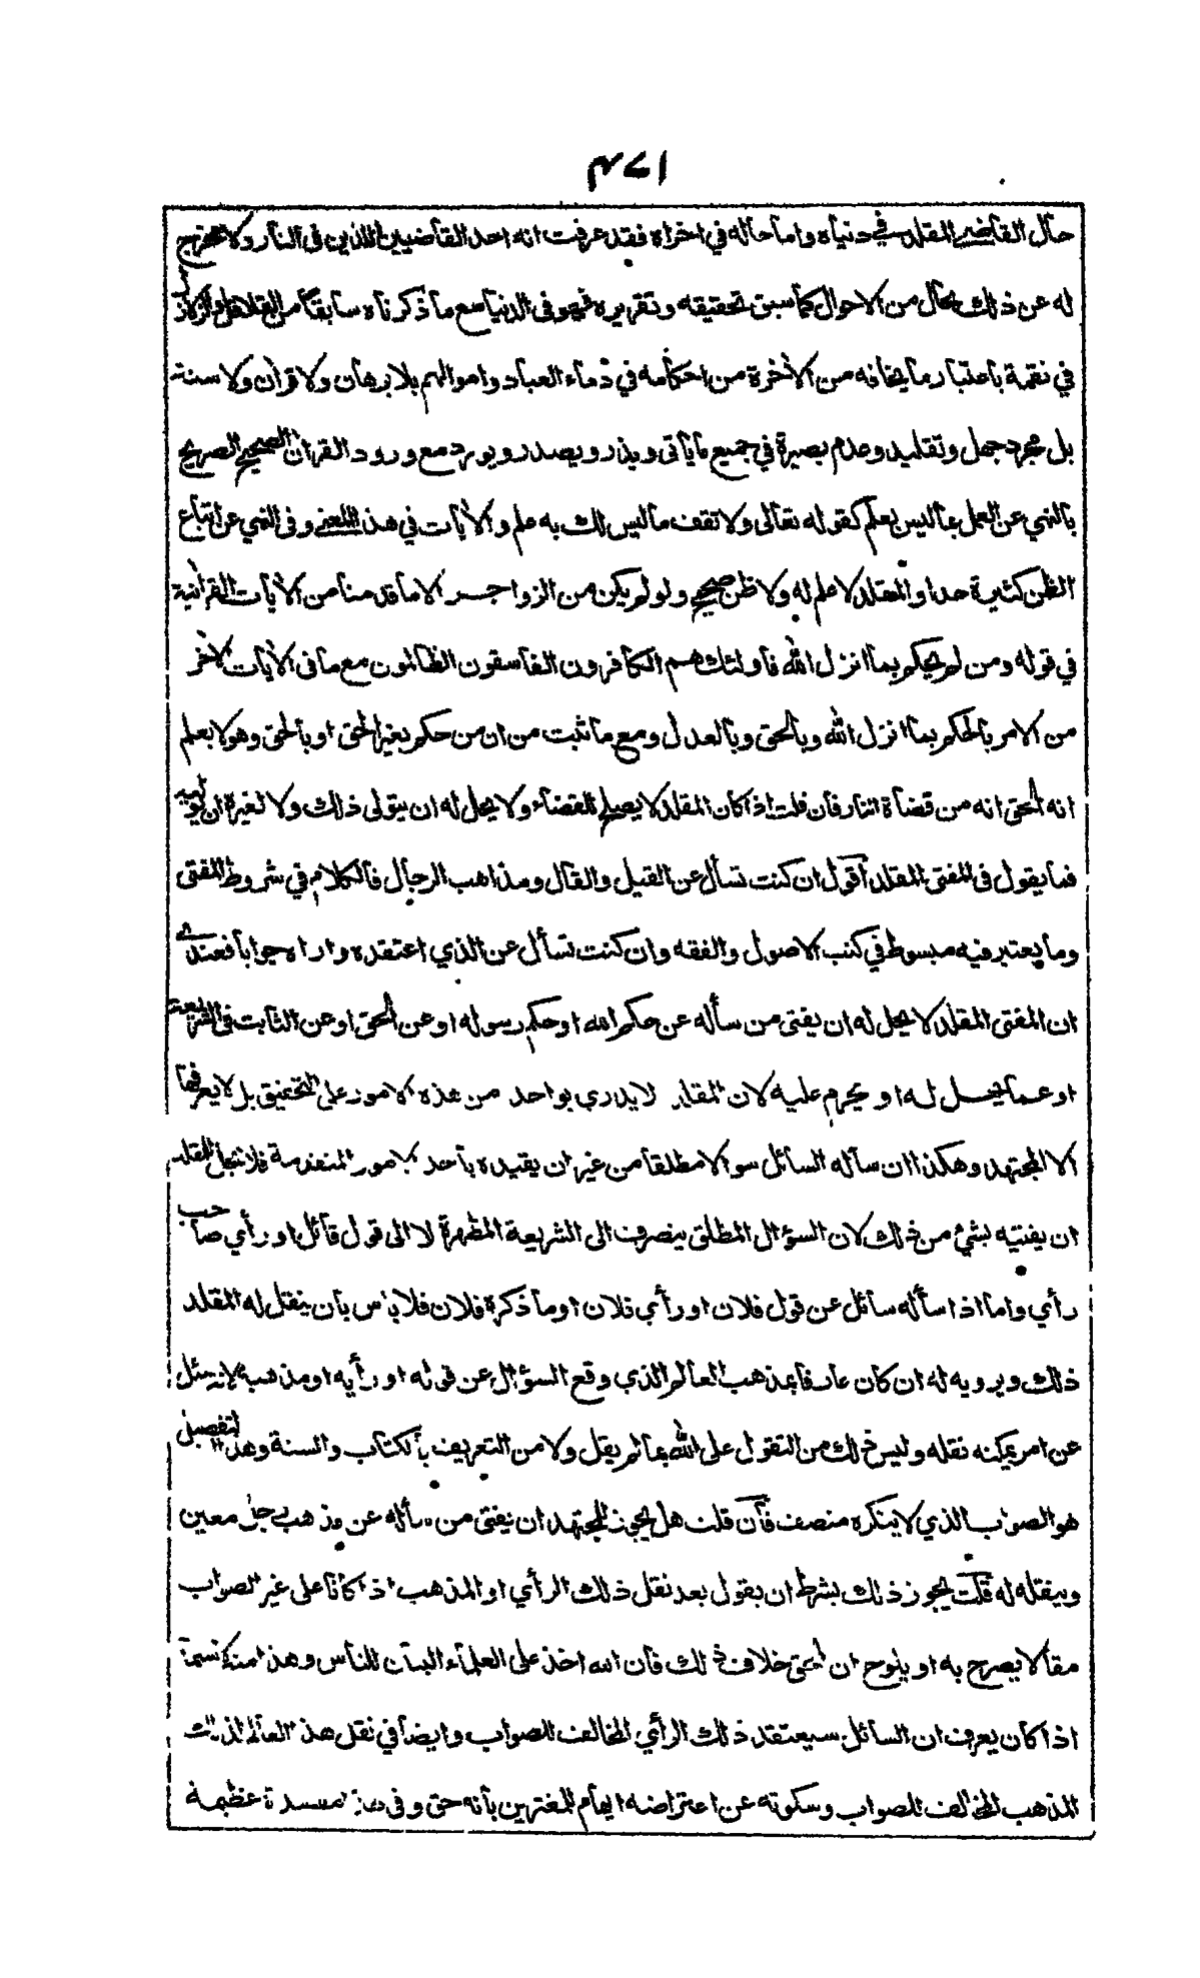 ١٧٤
حال القاضي المقلد في دنياه واما حاله في اخراه فقد عرفت انه احد القاضيين الذين في النار ولا مخرج
له عن ذلك بحال من الاحوال كما سبق تحقيقه وتقريره فهو في الدنيا مع ما ذكرناه سابقا من القلاقل والزلازل
في نقمة باعتبار ما يخافه من الأخرة من احكامه في دماء العباد واموالهم بلا برهان ولا قرأن ولا سنة
بل مجرد جهل وتقليد وعدم بصيرة في جميع ما يأتى ويذر ويصدر ويورد مع ورود القرأن الصحيح الصريح
بالنهي عن العمل بما ليس بعلم كقوله تعالى ولا تقف ما ليس لك به علم والأيات في هذا المعنى وفى النهي عن اتباع
الظن كثيرة جدا والمقلد لا علم له ولا ظن صحيح ولو لم يكن من الزواجر الا ما قدمنا من الأيات القرأنية
في قوله ومن لم يحكم بما انزل الله فأولئك هم الكافرون الفاسقون الظالمون مع ما فى الأيات الأخر
من الامر بالحكم بما انزل الله وبالحق وبالعدل ومع ما ثبت من ان من حكم بغير الحق او بالحق وهو لا يعلم
انه الحق انه من قضاة النار فان قلت اذا كان المقلد لا يصلح للقضاء ولا يحل له ان يتولى ذلك ولا لغيره ان يوليه
فما يقول فى المفتى المقلد أقول ان كنت تسأل عن القيل والقال ومذاهب الرجال فالكلام في شروط المفتى
وما يعتبر فيه مبسوط في كتب الاصول والفقه وان كنت تسأل عن الذي اعتقده واراه جوابا فعندي
ان المفتى المقلد لا يحل له ان يفتى من سأله عن حكم الله او حكم رسوله او عن الحق او عن الثابت فى الشريعة
او عما يحل له او يحرم عليه لان المقلد لا يدري بواحد من هذه الامور على التحقيق بل لا يعرفها
الا المجتهد وهكذا ان سأله السائل سوالا مطلقا من غير ان يقيده بأحد الامور المتقدمة فلا يحل للمقلد
ان يفتيه بشئ من ذلك لان السؤال المطلق ينصرف الى الشريعة المطهرة لا الى قول قائل او رأي صاحب
رأي واما اذا سأله سائل عن قول فلان او رأي فلان او ما ذكره فلان فلا بأس بأن ينقل له المقلد
ذلك ويرويه له ان كان عارفا بمذهب العالم الذي وقع السؤال عن قوله او رأيه او مذهبه لانه سئل
عن امر يمكنه نقله وليس ذلك من التقول على الله بما لم يقل ولا من التعريف بالكتاب والسنة وهذا التفصيل
هو الصواب الذي لا ينكره منصف فأن قلت هل يجوز للمجتهد ان يفتى من سأله عن مذهب رجل معين
وينقله له قلت يجوز ذلك بشرط ان يقول بعد نقل ذلك الرأي او المذهب اذا كانا على غير الصواب
مقالا يصرح به او يلوح ان الحق خلاف ذلك فأن الله اخذ على العلماء البيان للناس وهذا منه لا سيما
اذا كان يعرف ان السائل سيعتقد ذلك الرأي المخالف للصواب وايضا في نقل هذا العالم لذلك
المذهب المخالف للصواب وسكوته عن اعتراضه ايهام للمغترين بأنه حق وفى هذا مفسدة عظيمة